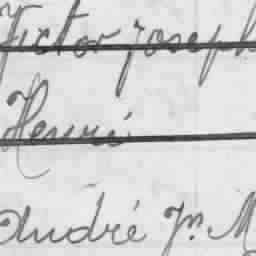 Victor Joseph
Henri
André Jn. M